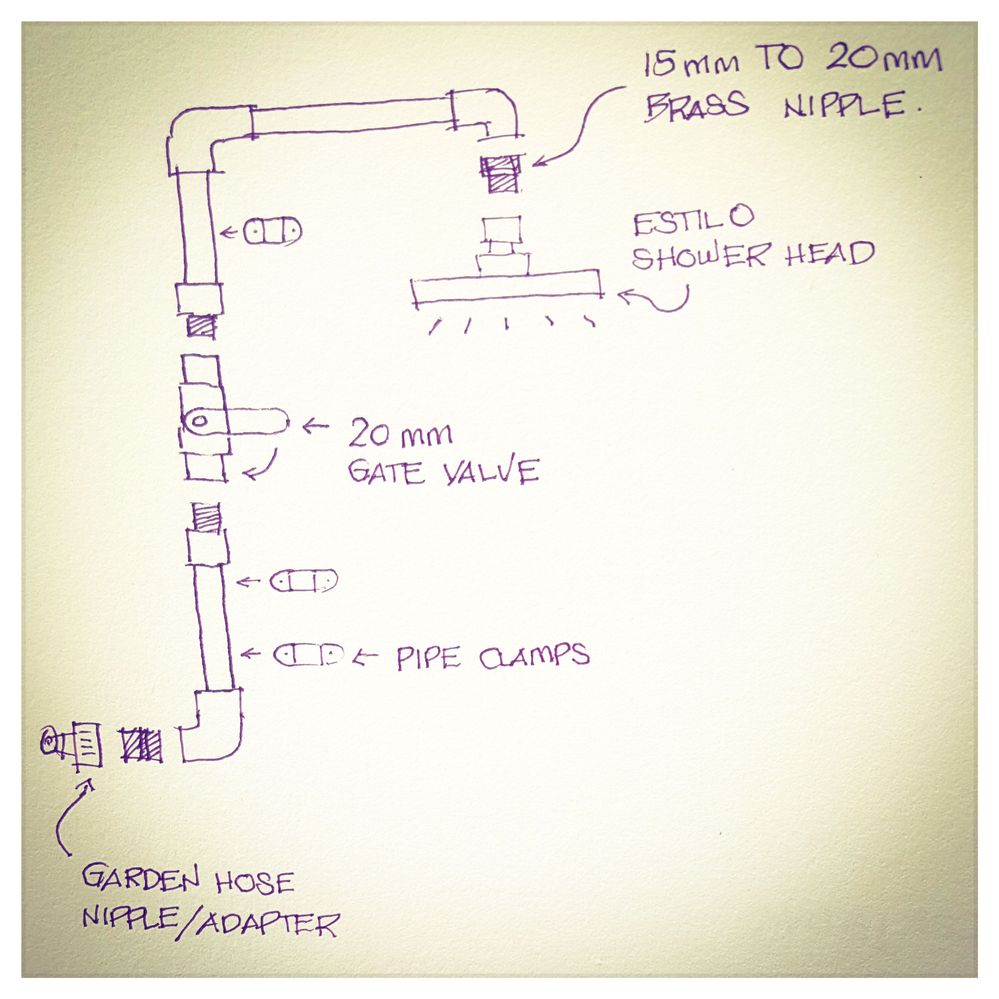 15mm TO 20mm
BRASS NIPPLE.
ESTILO
SHOWER HEAD
20 mm
GATE VALVE
PIPE CLAMPS
GARDEN HOSE
NIPPLE/ADAPTER